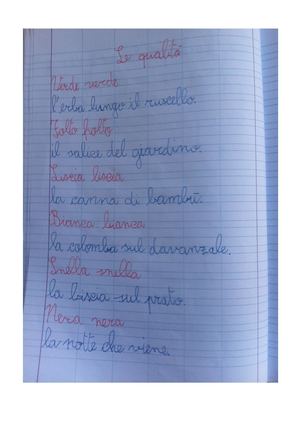 Le qualità
Verde verde
l'erba lungo il ruscello.
Folto folto
il salice del giardino.
Liscia liscia
la canna di bambù.
Bianca bianca
la colomba sul davanzale.
Snella snella
la biscia sul prato.
Nera nera
la notte che viene.